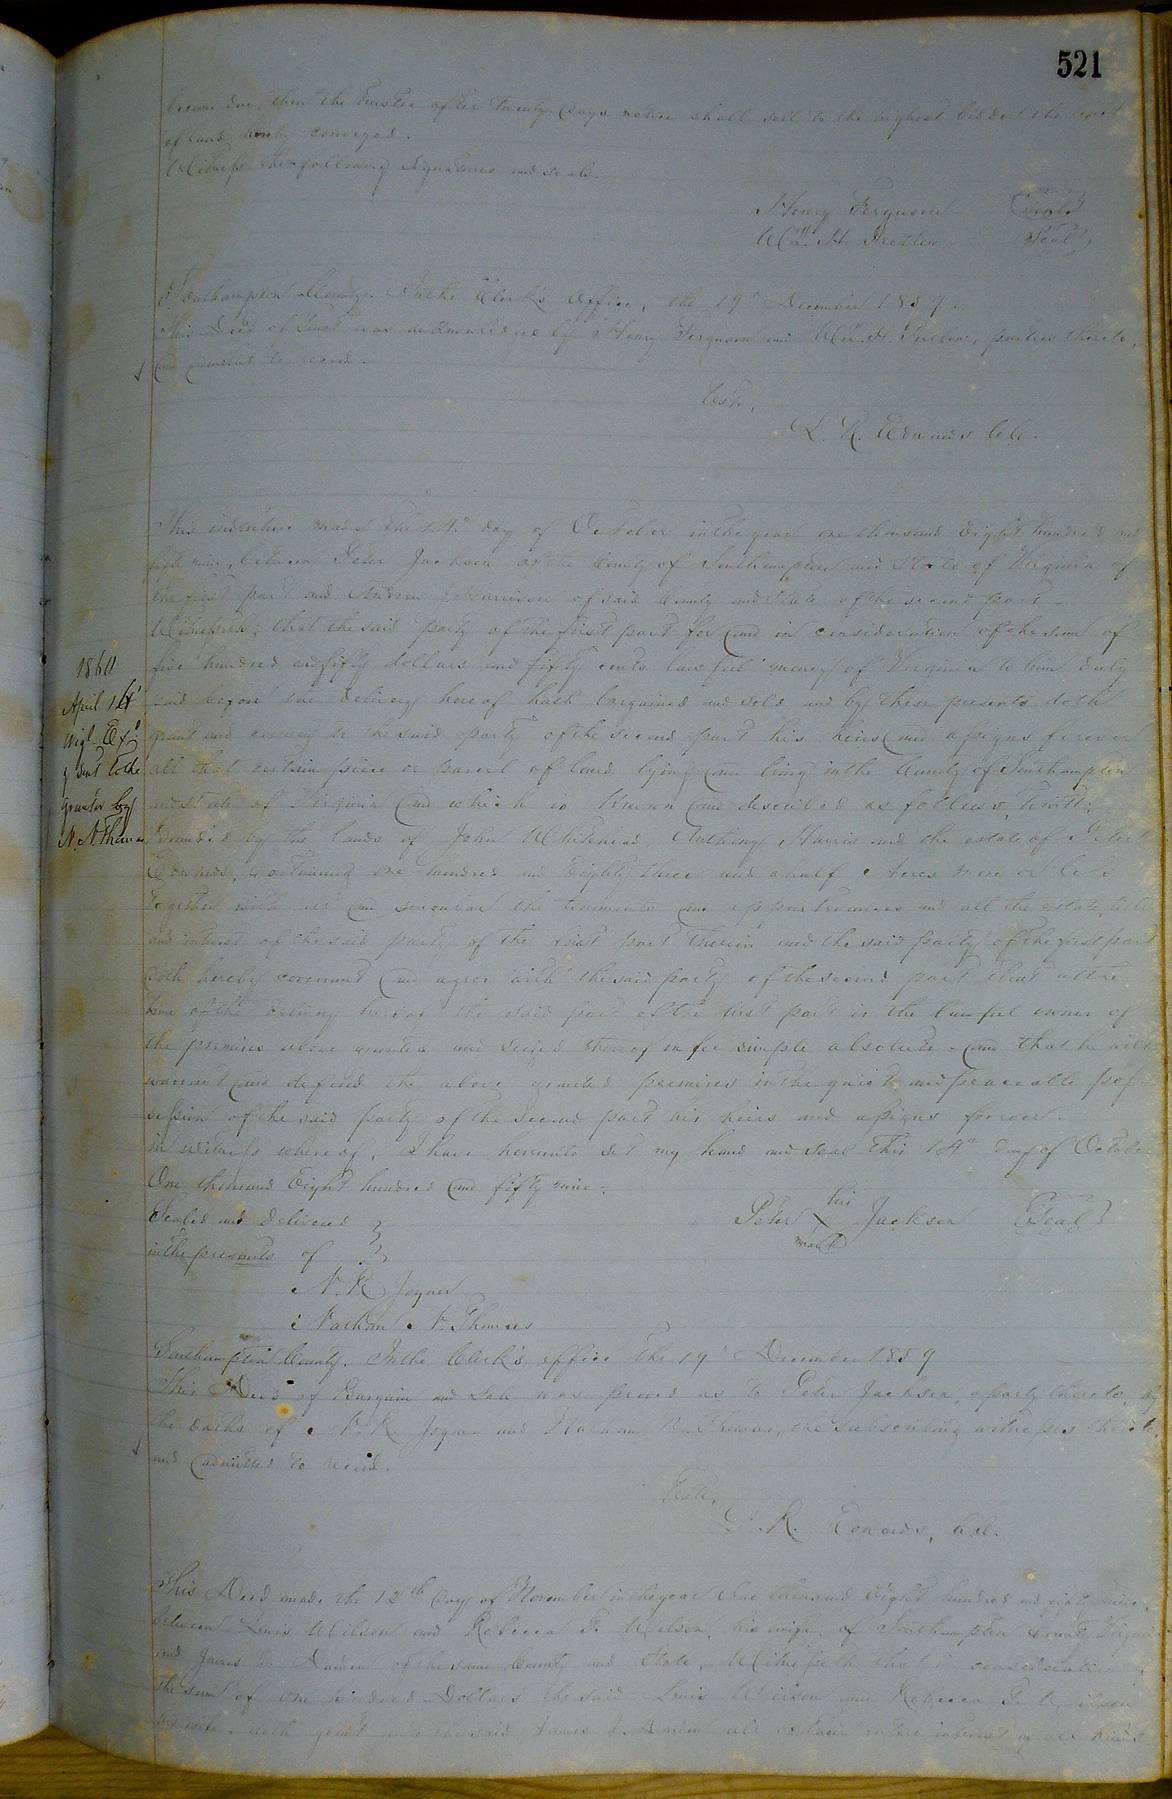 521
become due, then the Trustee after twenty days notice shall sell to the highest bidder the tract
of land hereby conveyed.
Witness the following signatures and seals.
Henry Ferguson (Seal)
Wm. H. (Seal)
Southampton County. In the Clerk's Office, the 19th December 1859.
This Deed of Trust was acknowledged by Henry Ferguson and Wm. H. parties thereto,
and admitted to record.
Teste,
L. R. Edwards C.C.
This indenture made the 14th day of October in the year one thousand Eight hundred and
fifty nine, between Peter Jackson of the County of Southampton and State of Virginia of
the first part and Andrew J. Harrison of said County and State of the second part -
Witnesseth, that the said party of the first part for and in consideration of the sum of
five hundred and fifty dollars and fifty cents lawful money of Virginia to him duly
paid before the delivery hereof hath bargained and sold and by these presents doth
grant and convey to the said party of the second part his heirs and assigns forever
all that certain piece or parcel of land lying and being in the County of Southampton
and State of Virginia and which is known and described as follows, Towitt:
Bounded by the lands of John Whitehead, Anthony Harris and the estate of
Edwards, containing one hundred and Eighty three and a half Acres more or less
Together with all and singular the tenements and appurtenances and all the estate, title
and interest of the said party of the first part therein and the said party of the first part
doth hereby covenant and agree with the said party of the second part that at the
time of the delivery hereof the said part of the first part is the lawful owner of
the premises above granted and seized thereof in fee simple absolute - and that he will
warrant and defend the above granted premises in the quiet and peaceable pos-
session of the said party of the second part his heirs and assigns forever.
in witness whereof, I have hereunto set my hand and seal this 14th day of October
One thousand Eight hundred and fifty nine -
Sealed and Delivered }
in the presents of }
his
Peter X Jackson (Seal)
mark
N. R. Joyner
Nathan N. Thomas
1860
April 14
Orgl. Exd.
& sent to the
Grantor by
N. N. Thomas
Southampton County. In the Clerk's office the 19 December 1859
This Deed of Bargain and Sale was proved as to Peter Jackson, a party thereto, by
the oaths of N. R. Joyner and Nathan N. Thomas, the subscribing witnesses thereto
and admitted to record.
Teste,
L. R. Edwards, C.C.
This Deed made the 12th day of November in the year One thousand Eight hundred and fifty nine,
between Lewis Wilson and Rebecca T. Wilson, his wife, of Southampton County Virginia
and James J. Darden of the same County and State, Witnesseth that in consideration of
the sum of one hundred Dollars the said Lewis Wilson and Rebecca T. Wilson
his wife, doth grant unto the said James J. Darden all of their entire interest